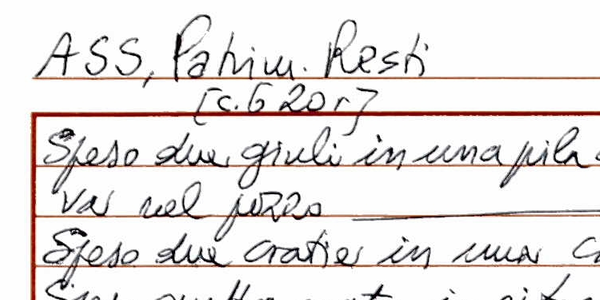 ASS, Patrim. Resti
[c. 620r]
Speso due giuli in una pila
va nel pozzo
Speso due cratie in una